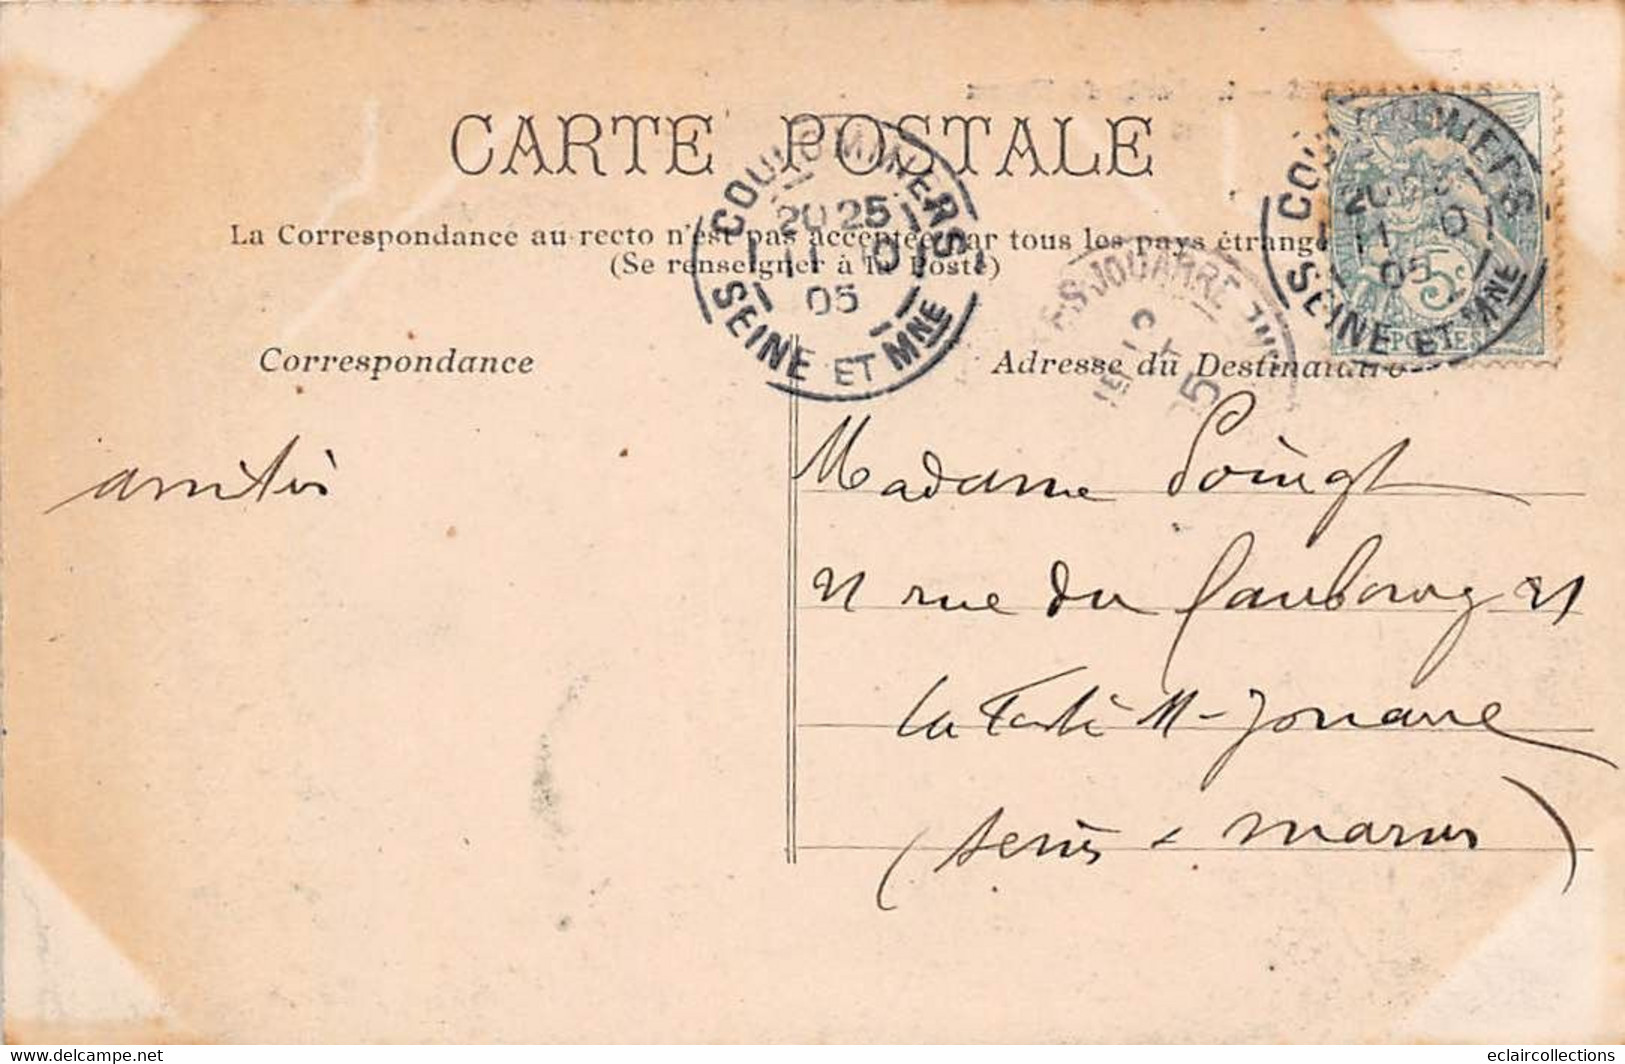 CARTE POSTALE
La Correspondance au recto n'est pas acceptée par tous les pays étrange
(Se renseigner à la Poste)
COULOMMIERS
20 25
11 10
05
SEINE ET MNE
COULOMMIERS
11 10
05
SEINE ET MNE
5c
POSTES
JOUARRE
Correspondance
Adresse du Destinataire
amitiés
Madame Poingt
21 rue du faubourg 21
La Ferté s/ Jouarre
(Seine & Marne)
www.delcampe.net
eclaircollections